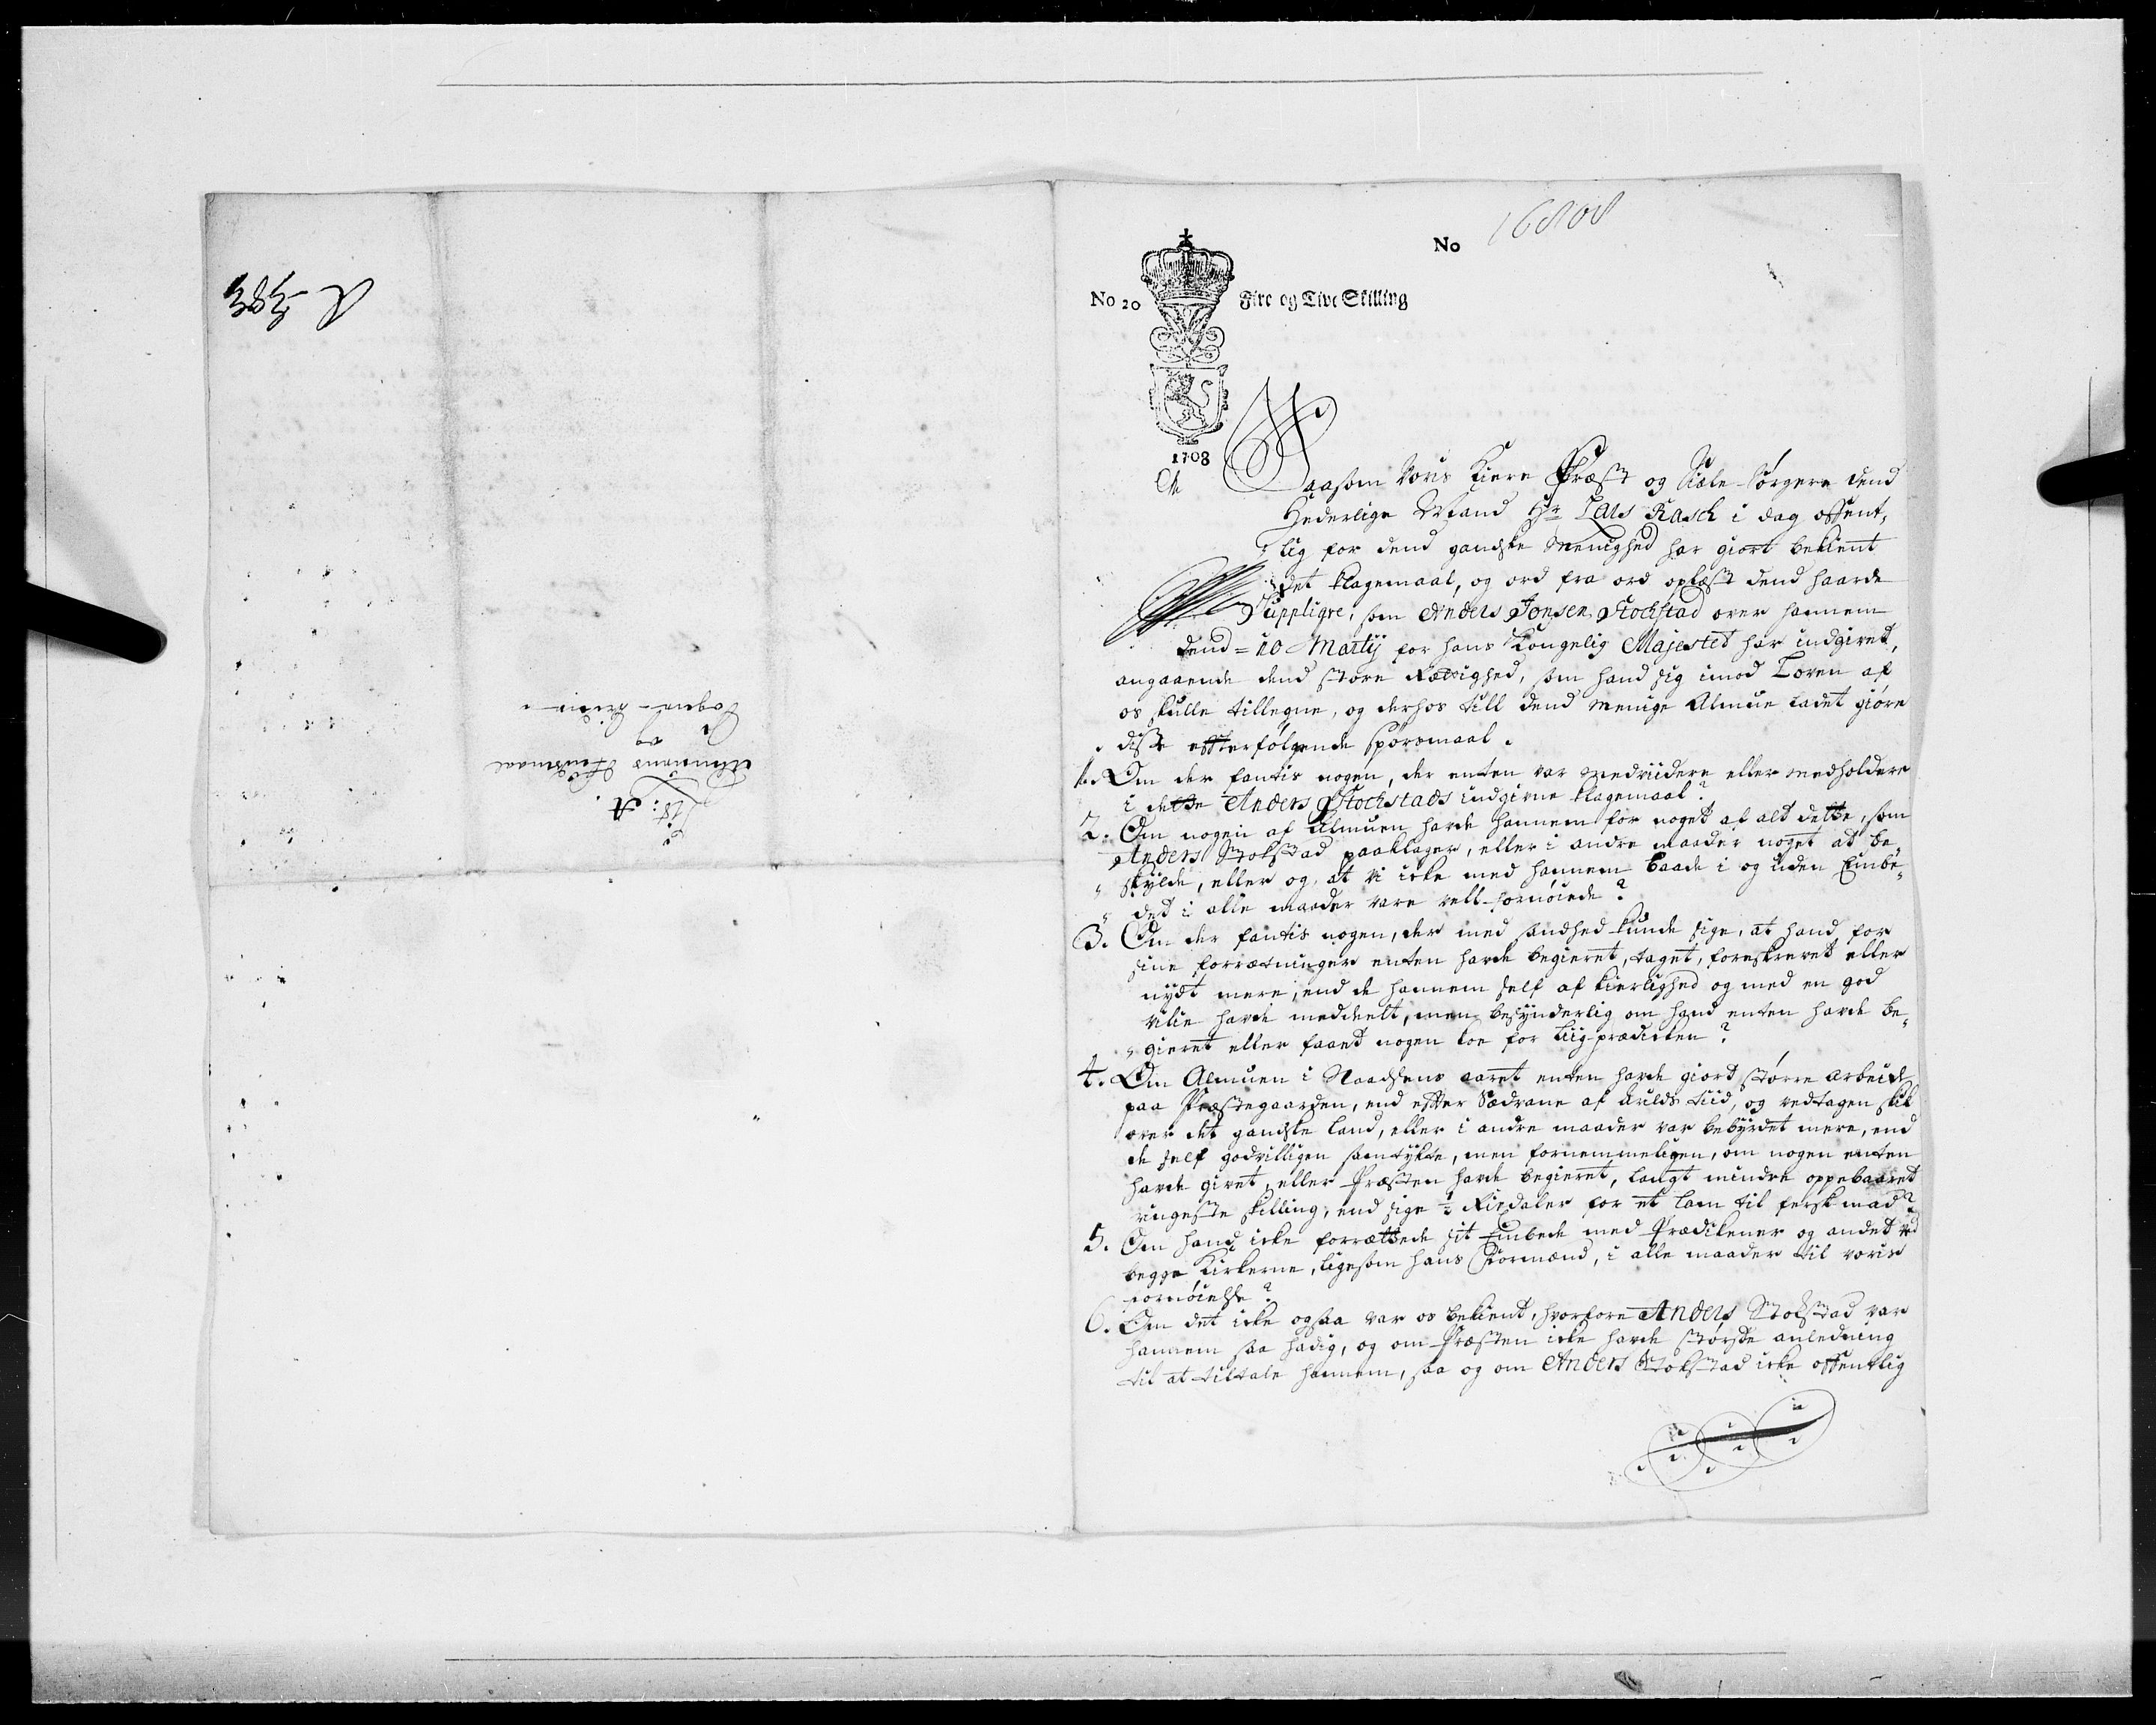 No 16808
No 20 Fire og Tive Skilling
1708
Saasom Voris Kiere Præst og Siæle-Sørgere dend
Hæderlige Mand Hr Lars Rasch i dag offent„
„lig for dend gandske Menighed har giort bekient
det klagemaal, og ord fra ord oplæst dend haarde
Suppliqve, som Anders Jonsen Stochstad over hannem
dend = 10 Martij for hans Kongelig Majestet har indgivet,
angaaende dend store Rætighed, som hand sig imod Loven af
os skulle tillegne, og derhos till dend menige Almue ladet giøre
disse efterfølgende spørsmaal.
1. Om der fantis nogen, der enten var medviidere eller medholdere
i dette Anders Stochstads indgivne klagemaal?
2. Om nogen af Almuen hafde hannem for noget af alt dette, som
Anders Stokstad paaklager, eller i andre maader noget at be„
„skylde, eller og, at vi icke med hannem baade i og uden Embe„
„det i alle maader vare vell-fornøiede?
3. Om der fantis nogen, der med sandhed kunde sige, at hand for
sine forrætninger enten hafde begieret, taget, foreskrevet eller
nydt mere, end de hannem self af kierlighed og med en god
vilie hafde meddeelt, men besynderlig om hand enten hafde be„
„gieret eller faaet nogen koe for Liig-prædicken?
4. Om Almuen i Naadsens aaret enten hafde giort større arbeide
paa Præstegaarden, end efter Sædvane af Arilds tiid, og vedtagen skik
over det gandske land, eller i andre maader var bebyrdet mere, end
de self godvilligen samtykte, men fornemmeligen, om nogen enten
hafde givet, eller Præsten hafde begieret, langt mindre oppebaaret
ringeste skilling, end sige ½ Rixdaler for et lam til fersk mad?
5. Om hand icke forrættede sit Embede med Prædikener og andet ved
begge Kirkerne, ligesom hans Formænd, i alle maader til voris
fornøielse?
6. Om det icke ogsaa var os bekient, hvorfore Anders Stokstad var
hannem saa hadig, og om Præsten icke hafde største anledning
til at tiltale hannem, saa og om Anders Stokstad icke offentlig
Lit: A.
Almuens
og